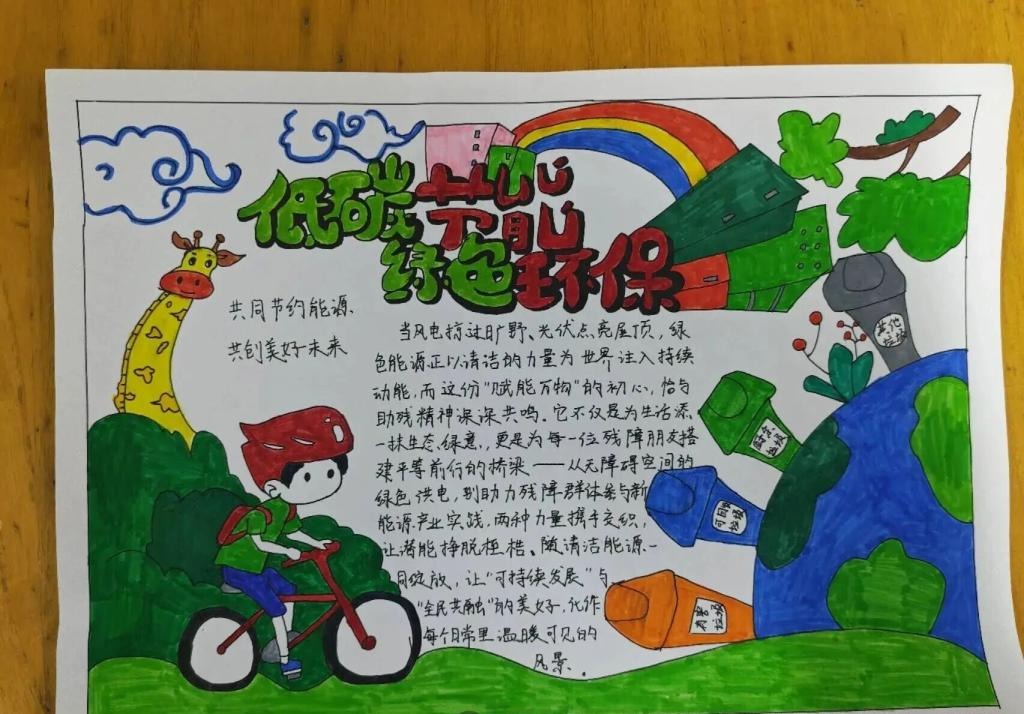 低碳节能
绿色环保
共同节约能源
共创美好未来
当风电掠过旷野、光伏点亮屋顶，绿
色能源正以清洁的力量为世界注入持续
动能，而这份"赋能万物"的初心，恰与
助残精神深深共鸣。它不仅是为生活添
一抹生态绿意，更是为每一位残障朋友搭
建平等前行的桥梁——从无障碍空间的
绿色供电，到助力残障群体参与新
能源产业实践，两种力量携手交织，
让潜能挣脱桎梏、随清洁能源一
同绽放，让"可持续发展"与
"全民共融"的美好，化作
每个日常里温暖可见的
风景。
其他
垃圾
厨余
垃圾
可回收
垃圾
有害
垃圾